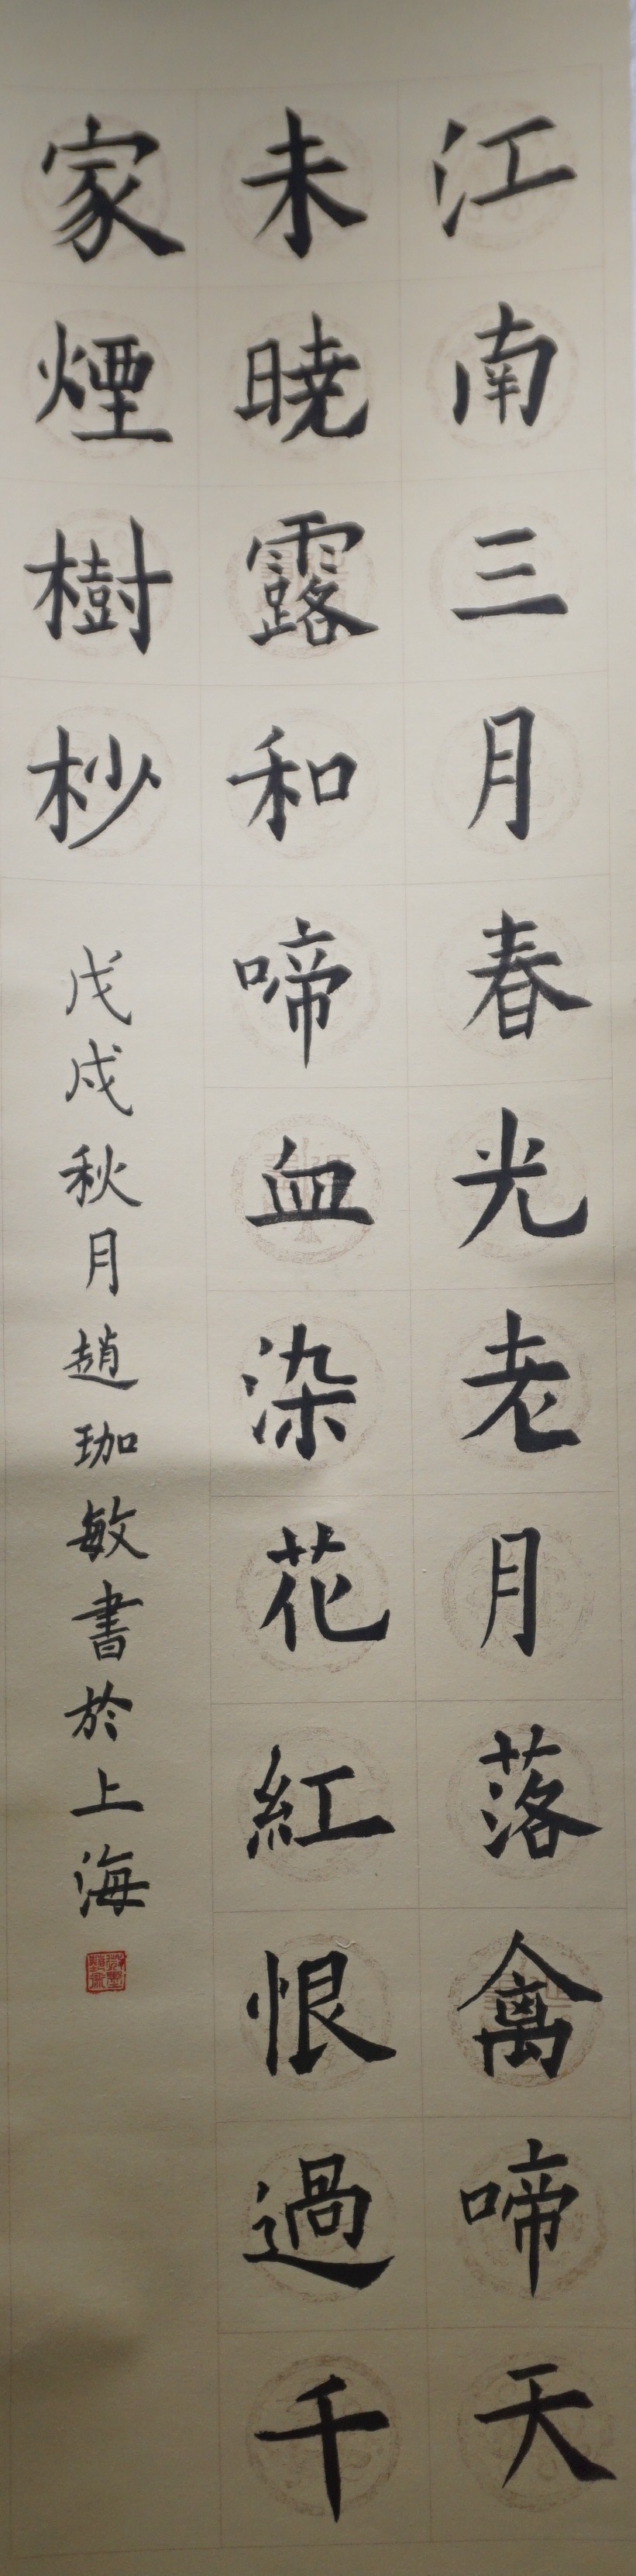 江南三月春光老月落禽啼天
未晓露和啼血染花紅恨過千
家煙樹杪
戊戌秋月趙珈敏書於上海